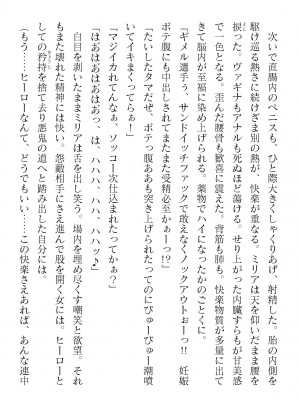 次いで直腸内のペニスも、ひと際大きくしゃくりあげ、射精した。胎の内側を
駆け巡る熱さに続けざま別の熱が、快楽が重なる。ミリアは天を仰いだまま腰を
捩った。ヴァギナもアナルも死ぬほど蕩ける。せり上がった内臓すらもが甘美感
で一色となる。歪んだ腰骨も歓喜に震えた。背筋も肺も。快楽物質が多量に出て
きて脳内が至福に染め上げられる。薬物でハイになったかのごとくに。
「ギメル選手ぇっ、サンドイッチファックで軽くノックアウトぉーっ!! 妊娠
ボテ腹にも中出しされてまたまた受精必至かーっ!?」
「たいしたタマだな、ボテっ腹ああも突き上げられたってのにぴゅーぴゅー潮噴
いてイキまくってらぁ」
「マジイカれてんなぁ、ソッコー次仕込まれたってかぁ?」
「はおはおはおはおっ、は、ハハハ、ハハ、ハハッ♪」
白目を剥いたままミリアは舌を出し笑う。場内を埋め尽くす嘲笑と欲望。それ
もまた壊れた精神には快い。怨敵相手にさえ進んで股を開く女には。ヒーローと
しての矜持を捨て去り悪鬼の道へと踏み出した自分には。
(もう……ヒーローなんて、どうでもいい……この快楽さえあれば。あんな連中